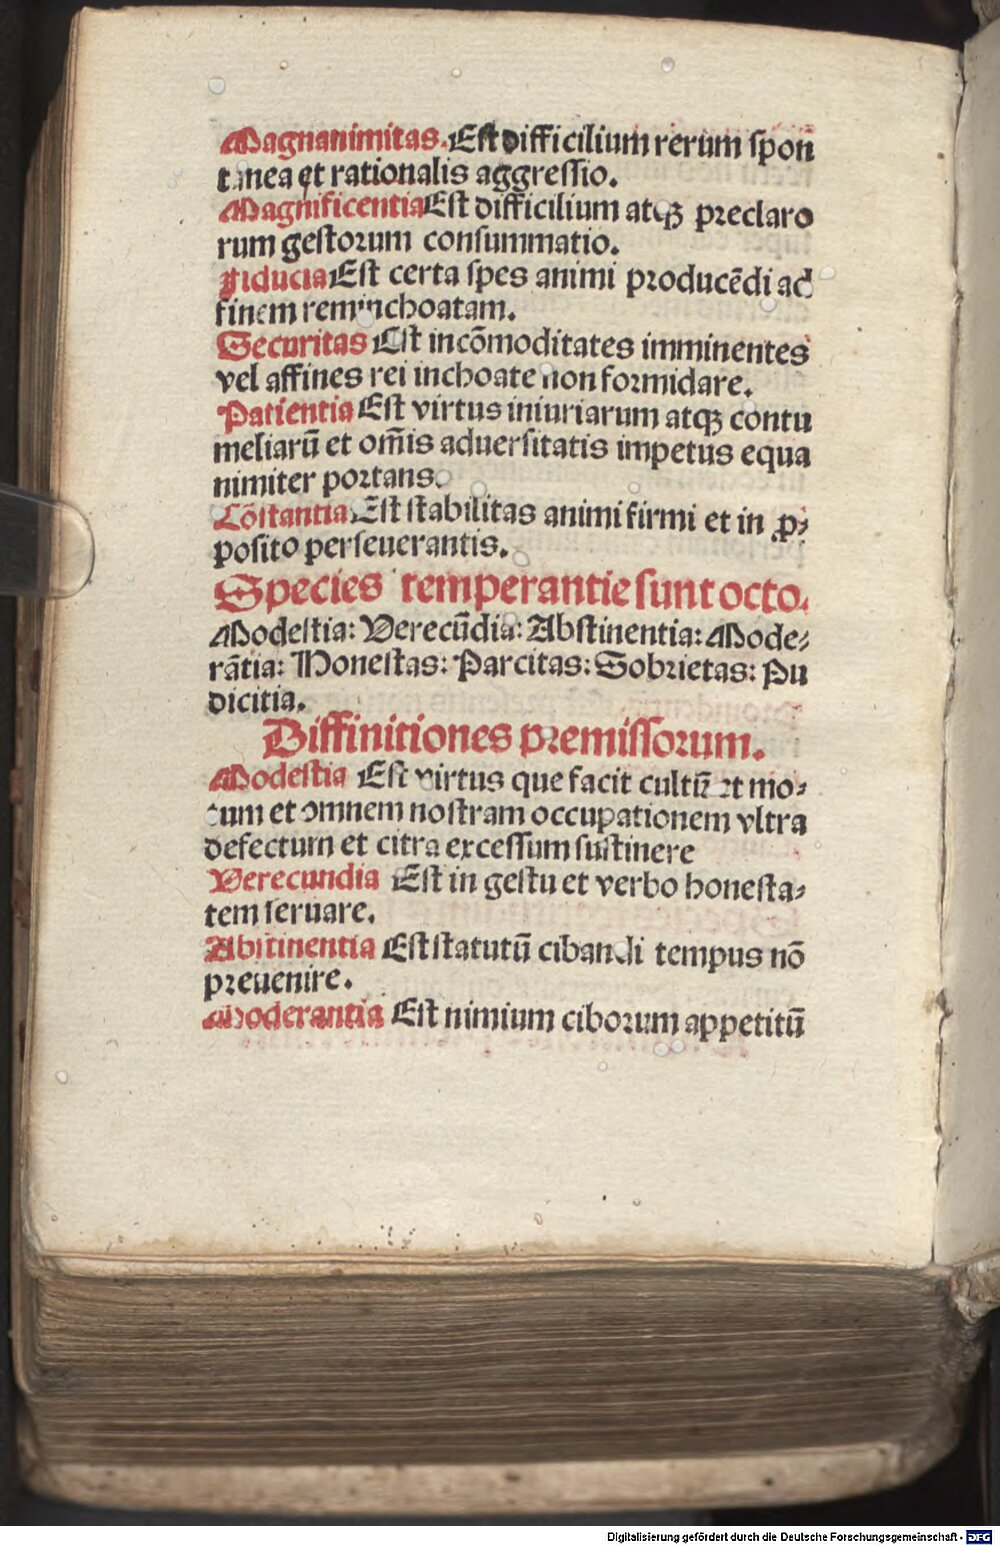 Magnanimitas. Est difficilium rerum spon
tanea et rationalis aggressio.
Magnificentia Est difficilium atqꝫ preclaro
rum gestorum consummatio.
Fiducia Est certa spes animi producēdi ad
finem rem inchoatam.
Securitas Est incōmoditates imminentes
vel affines rei inchoate non formidare.
Patientia Est virtus iniuriarum atqꝫ contu
meliarū et om̄is aduersitatis impetus equa
nimiter portans.
Cōstantia Est stabilitas animi firmi et in ꝓ⸗
posito perseuerantis.
Species temperantie sunt octo.
Modestia: Verecūdia: Abstinentia: Mode⸗
rātia: Honestas: Parcitas: Sobrietas: Pu
dicitia.
Diffinitiones premissorum.
Modestia Est virtus que facit cultū et mo⸗
tum et omnem nostram occupationem vltra
defectum et citra excessum sustinere
Verecundia Est in gestu et verbo honesta⸗
tem seruare.
Abstinentia Est statutū cibandi tempus nō
preuenire.
Moderantia Est nimium ciborum appetitū
Digitalisierung gefördert durch die Deutsche Forschungsgemeinschaft - DFG